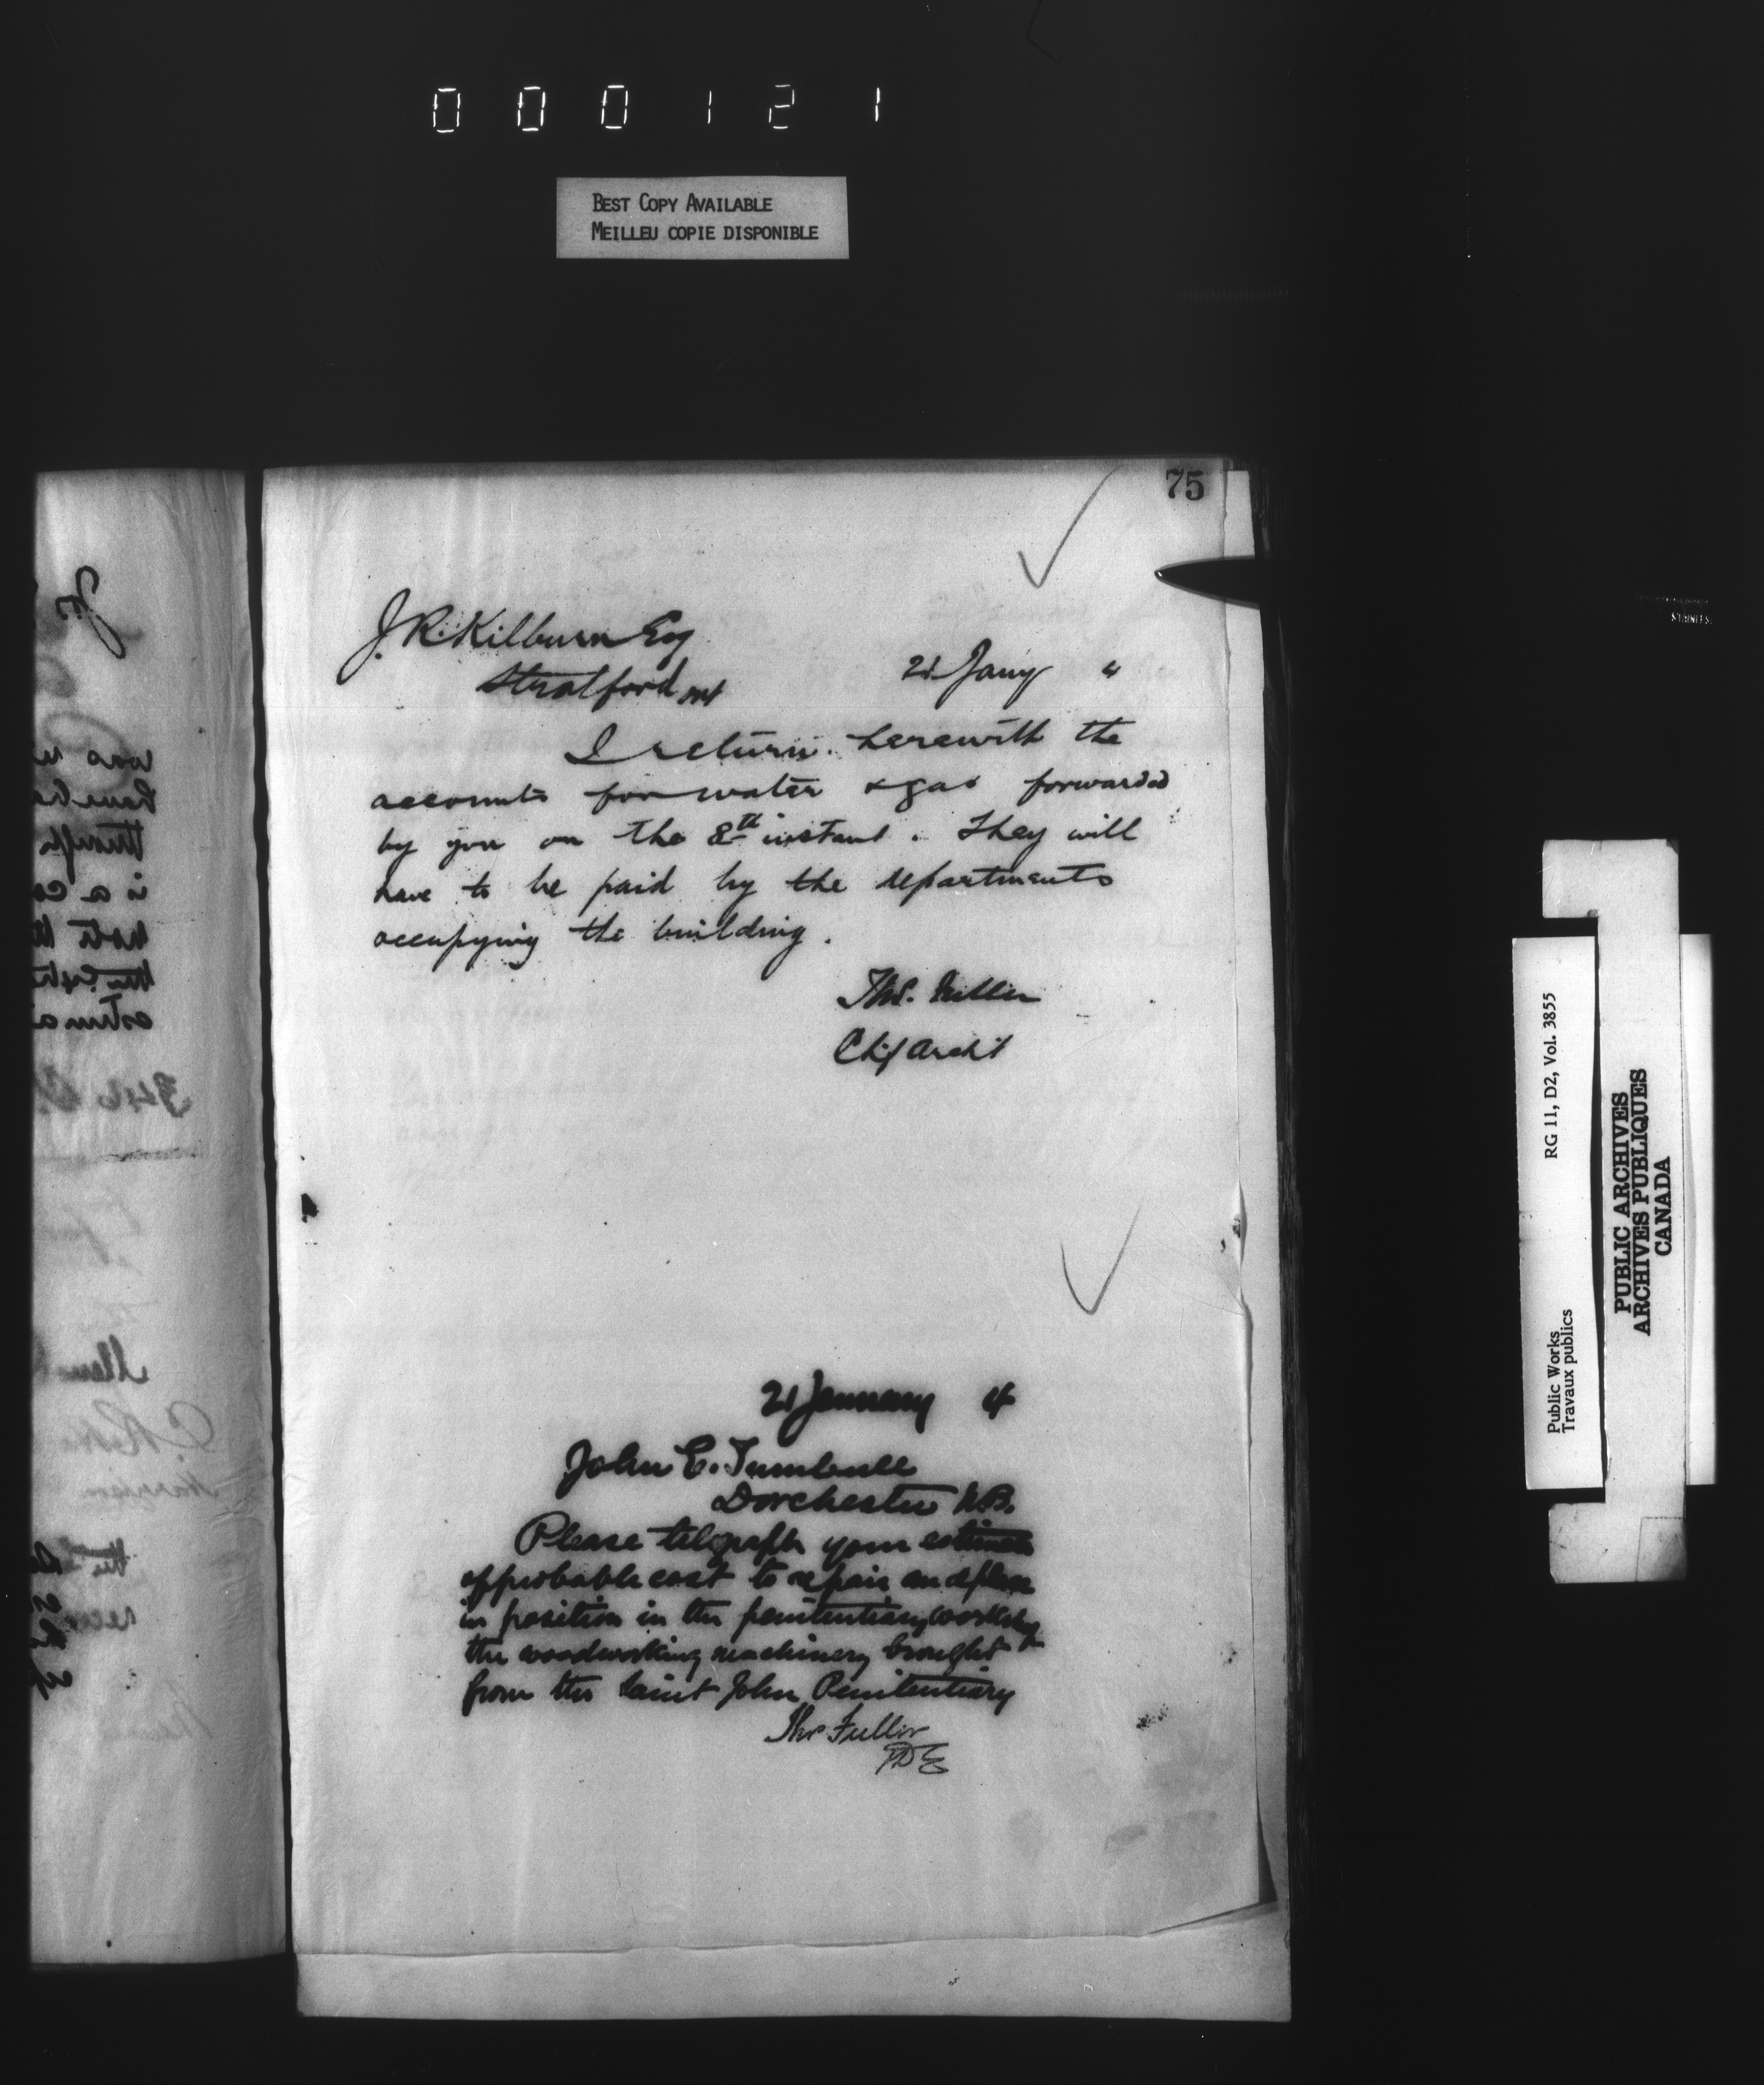 000121
BEST COPY AVAILABLE
MEILLEU COPIE DISPONIBLE
75
J. R. Kilburn Esq
Stratford Ont
21 Jany 4
I return herewith the
accounts for water & gas forwarded
by you on the 8th instant. They will
have to be paid by the departments
occupying the building.
Thos. Fuller
Chf Archt
21 January 4
John E. Turnbull
Dorchester N.B.
Please telegraph your estimate
of probable cost to repair and place
in position in the penitentiary workshop
the woodworking machinery brought
from the Saint John Penitentiary
Thos Fuller
RG 11, D2, Vol. 3855
Public Works
Travaux publics
PUBLIC ARCHIVES
ARCHIVES PUBLIQUES
CANADA